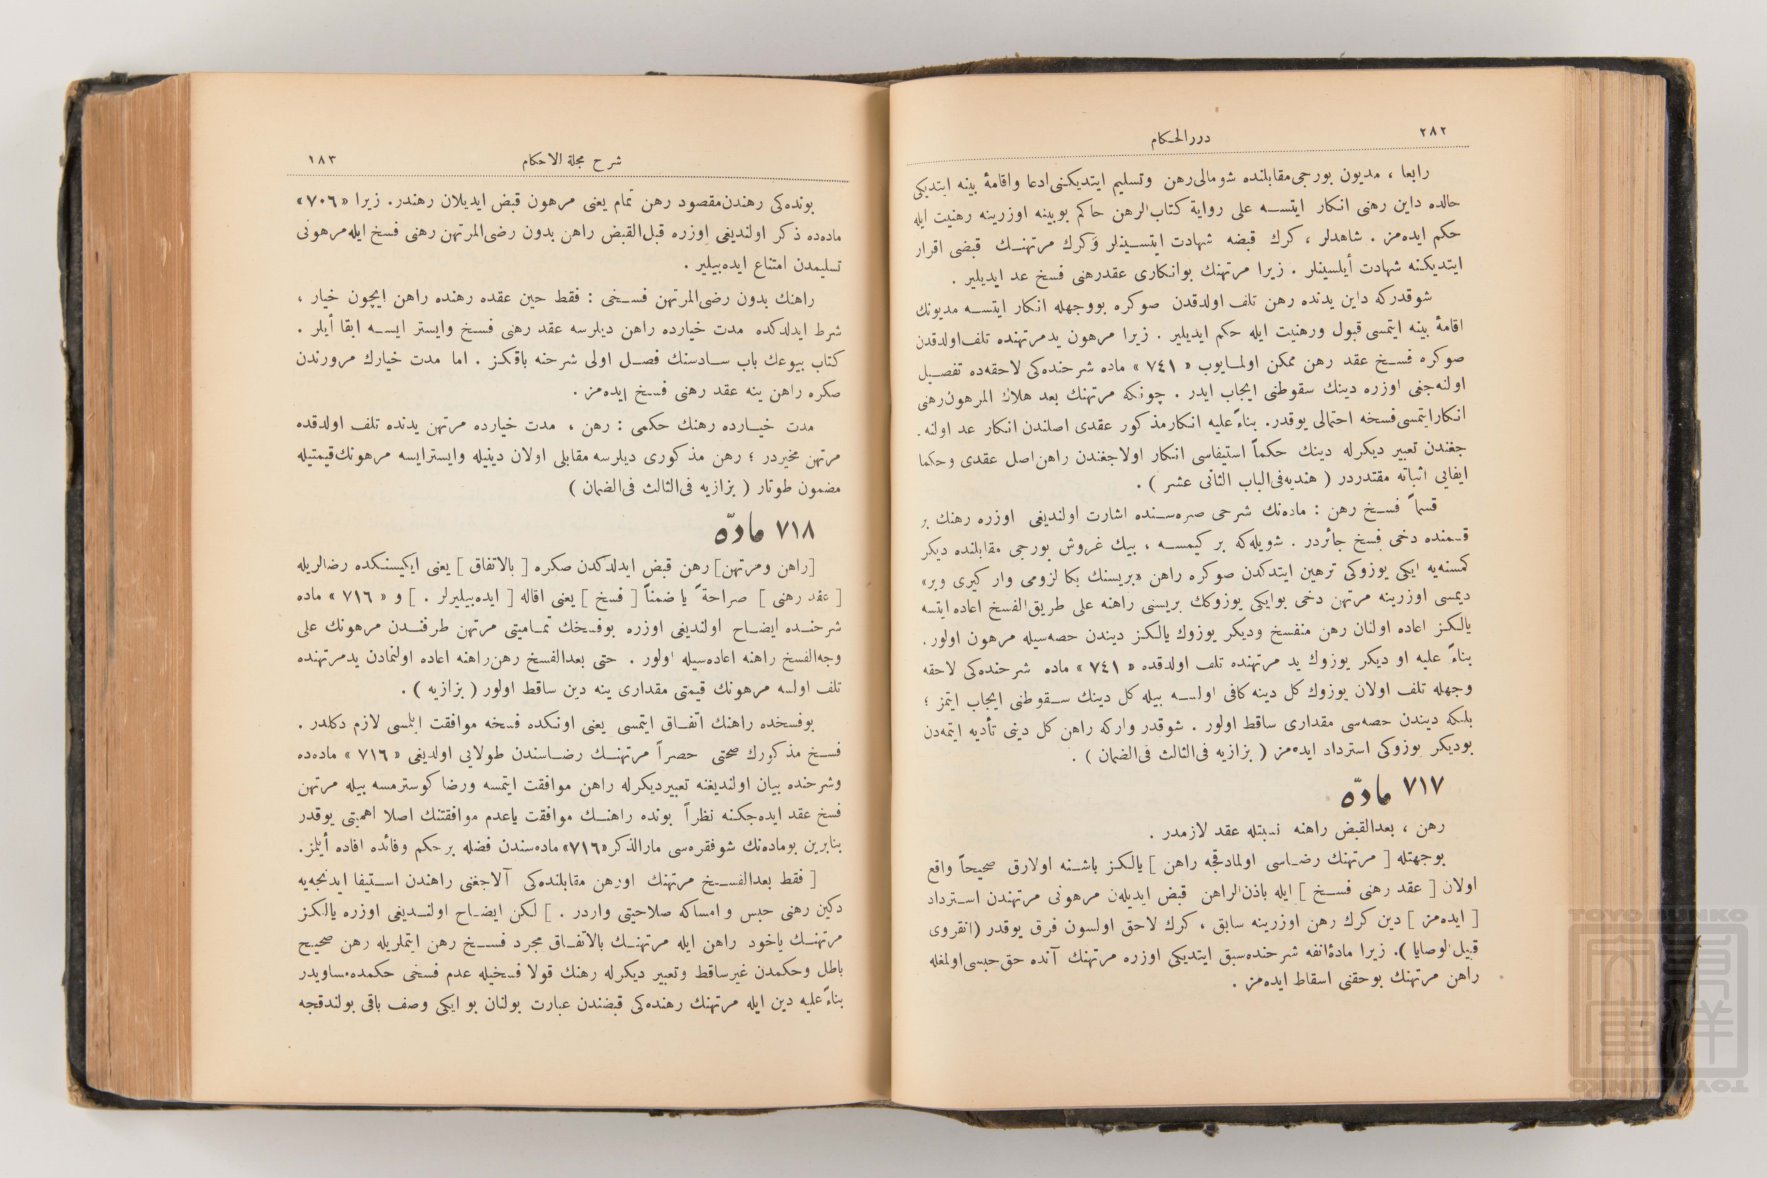 ٢٨٢
دررالحكام
رابعا ، مديون بورجى مقابلنده شو مالى رهن وتسليم ايتديكنى ادعا واقامۀ بينه ايتديكى
حالده داين رهنى انكار ايتسه على رواية كتاب الرهن حاكم بوبينه اوزرينه رهنيت ايله
حكم ايده‌مز . شاهدلر ، كرك قبضه شهادت ايتسينلر وكرك مرتهنك قبضى اقرار
ايتديكنه شهادت أيلسينلر . زيرا مرتهنك بوانكارى عقدرهنى فسخ عد ايديلير .
شوقدركه داين يدنده رهن تلف اولدقدن صوكره بووجهله انكار ايتسه مديونك
اقامۀ بينه ايتمسى قبول ورهنيت ايله حكم ايديلير . زيرا مرهون يدمرتهنده تلف اولدقدن
صوكره فسخ عقد رهن ممكن اولمايوب « ٧٤١ » ماده شرحنده‌كى لاحقه‌ده تفصيل
اولنه‌جغى اوزره دينك سقوطنى ايجاب ايدر . چونكه مرتهنك بعد هلاك المرهون رهنى
انكارايتمسى فسخه احتمالى يوقدر. بناءً عليه انكارمذكور عقدى اصلندن انكار عد اولنه.
جغندن تعبير ديكرله دينك حكماً استيفاسى انكار اولاجغندن راهن اصل عقدى وحكما
ايفايى اثباته مقتدردر ( هنديه فى الباب الثانى عشر ) .
قسماً فسخ رهن : ماده‌نك شرحى صره‌سنده اشارت اولنديغى اوزره رهنك بر
قسمنده دخى فسخ جائزدر . شويله‌كه بر كيمسه ، بيك غروش بورجى مقابلنده ديكر
كمسنه‌يه ايكى يوزوكى ترهين ايتدكدن صوكره راهن «بريسنك بكا لزومى وار كيرى وير»
ديمسى اوزرينه مرتهن دخى بوايكى يوزوكك بريسنى راهنه على طريق الفسخ اعاده ايتسه
يالكز اعاده اولنان رهن منفسخ وديكر يوزوك يالكز ديندن حصه‌سيله مرهون اولور.
بناءً عليه او ديكر يوزوك يد مرتهنده تلف اولدقده « ٧٤١ » ماده شرحنده‌كى لاحقه
وجهله تلف اولان يوزوك كل دينه كافى اولسه بيله كل دينك سقوطنى ايجاب ايتمز ؛
بلكه ديندن حصه‌سى مقدارى ساقط اولور . شوقدر واركه راهن كل دينى تأديه ايتمه‌دن
بوديكر يوزوكى استرداد ايده‌مز ( بزازيه فى الثالث فى الضمان ) .
٧١٧ مادّه
رهن ، بعدالقبض راهنه نسبتله عقد لازمدر .
بوجهتله [ مرتهنك رضاسى اولمادقجه راهن ] يالكز باشنه اولارق صحيحاً واقع
اولان [ عقد رهنى فسخ ] ايله باذن الراهن قبض ايديلن مرهونى مرتهندن استرداد
[ ايده‌مز ] دين كرك رهن اوزرينه سابق ، كرك لاحق اولسون فرق يوقدر (انقروى
قبيل الوصايا ). زيرا مادۀ انفه شرحنده سبق ايتديكى اوزره مرتهنك آنده حق حبسى اولمغله
راهن مرتهنك بوحقنى اسقاط ايده‌مز .
شرح مجلة الاحكام
١٨٣
بونده‌كى رهندن مقصود رهن تمام يعنى مرهون قبض ايديلان رهندر. زيرا « ٧٠٦ »
ماده‌ده ذكر اولنديغى اوزره قبل القبض راهن بدون رضى المرتهن رهنى فسخ ايله مرهونى
تسليمدن امتناع ايده‌بيلير .
راهنك بدون رضى المرتهن فسخى : فقط حين عقده رهنده راهن ايچون خيار ،
شرط ايدلدكده مدت خيارده راهن ديلرسه عقد رهنى فسخ وايستر ايسه ابقا أيلر .
كتاب بيوعك باب سادسنك فصل اولى شرحنه باقكز . اما مدت خيارك مرورندن
صكره راهن ينه عقد رهنى فسخ ايده‌مز .
مدت خيارده رهنك حكمى : رهن ، مدت خيارده مرتهن يدنده تلف اولدقده
مرتهن مخيردر ؛ رهن مذكورى ديلرسه مقابلى اولان دينيله وايسترايسه مرهونك قيمتيله
مضمون طوتار ( بزازيه فى الثالث فى الضمان )
٧١٨ مادّه
[راهن ومرتهن] رهن قبض ايدلدكدن صكره [ بالاتفاق ] يعنى ايكيسنكده رضالريله
[ عقد رهنى ] صراحةً يا ضمناً [ فسخ ] يعنى اقاله [ ايده‌بيليرلر . ] و « ٧١٦ » ماده
شرحنده ايضاح اولنديغى اوزره بوفسخك تماميتى مرتهن طرفندن مرهونك على
وجه الفسخ راهنه اعاده‌سيله اولور . حتى بعدالفسخ رهن راهنه اعاده اولنمادن يدمرتهنده
تلف اولسه مرهونك قيمتى مقدارى ينه دين ساقط اولور ( بزازيه ) .
بوفسخده راهنك اتفاق ايتمسى يعنى اونكده فسخه موافقت ايلمسى لازم دكلدر .
فسخ مذكورك صحتى حصراً مرتهنك رضاسندن طولايى اولديغى « ٧١٦ » ماده‌ده
وشرحنده بيان اولنديغنه تعبيرديكرله راهن موافقت ايتمسه ورضا كوسترمسه بيله مرتهن
فسخ عقد ايده‌جكنه نظراً بونده راهنك موافقت ياعدم موافقتنك اصلا اهميتى يوقدر
بنابرين بوماده‌نك شوفقره‌سى مارالذكر «٧١٦» ماده‌سندن فضله برحكم وفائده افاده أيلمز.
[ فقط بعدالفسخ مرتهنك اورهن مقابلنده‌كى آلاجغنى راهندن استيفا ايدنجه‌يه
دكين رهنى حبس و امساكه صلاحيتى واردر . ] لكن ايضاح اولنديغى اوزره يالكز
مرتهنك ياخود راهن ايله مرتهنك بالاتفاق مجرد فسخ رهن ايتملريله رهن صحيح
باطل وحكمدن غيرساقط وتعبير ديكرله رهنك قولا فسخيله عدم فسخى حكمده مساويدر
بناءً عليه دين ايله مرتهنك رهنده‌كى قبضندن عبارت بولنان بو ايكى وصف باقى بولندقجه
TOYO BUNKO